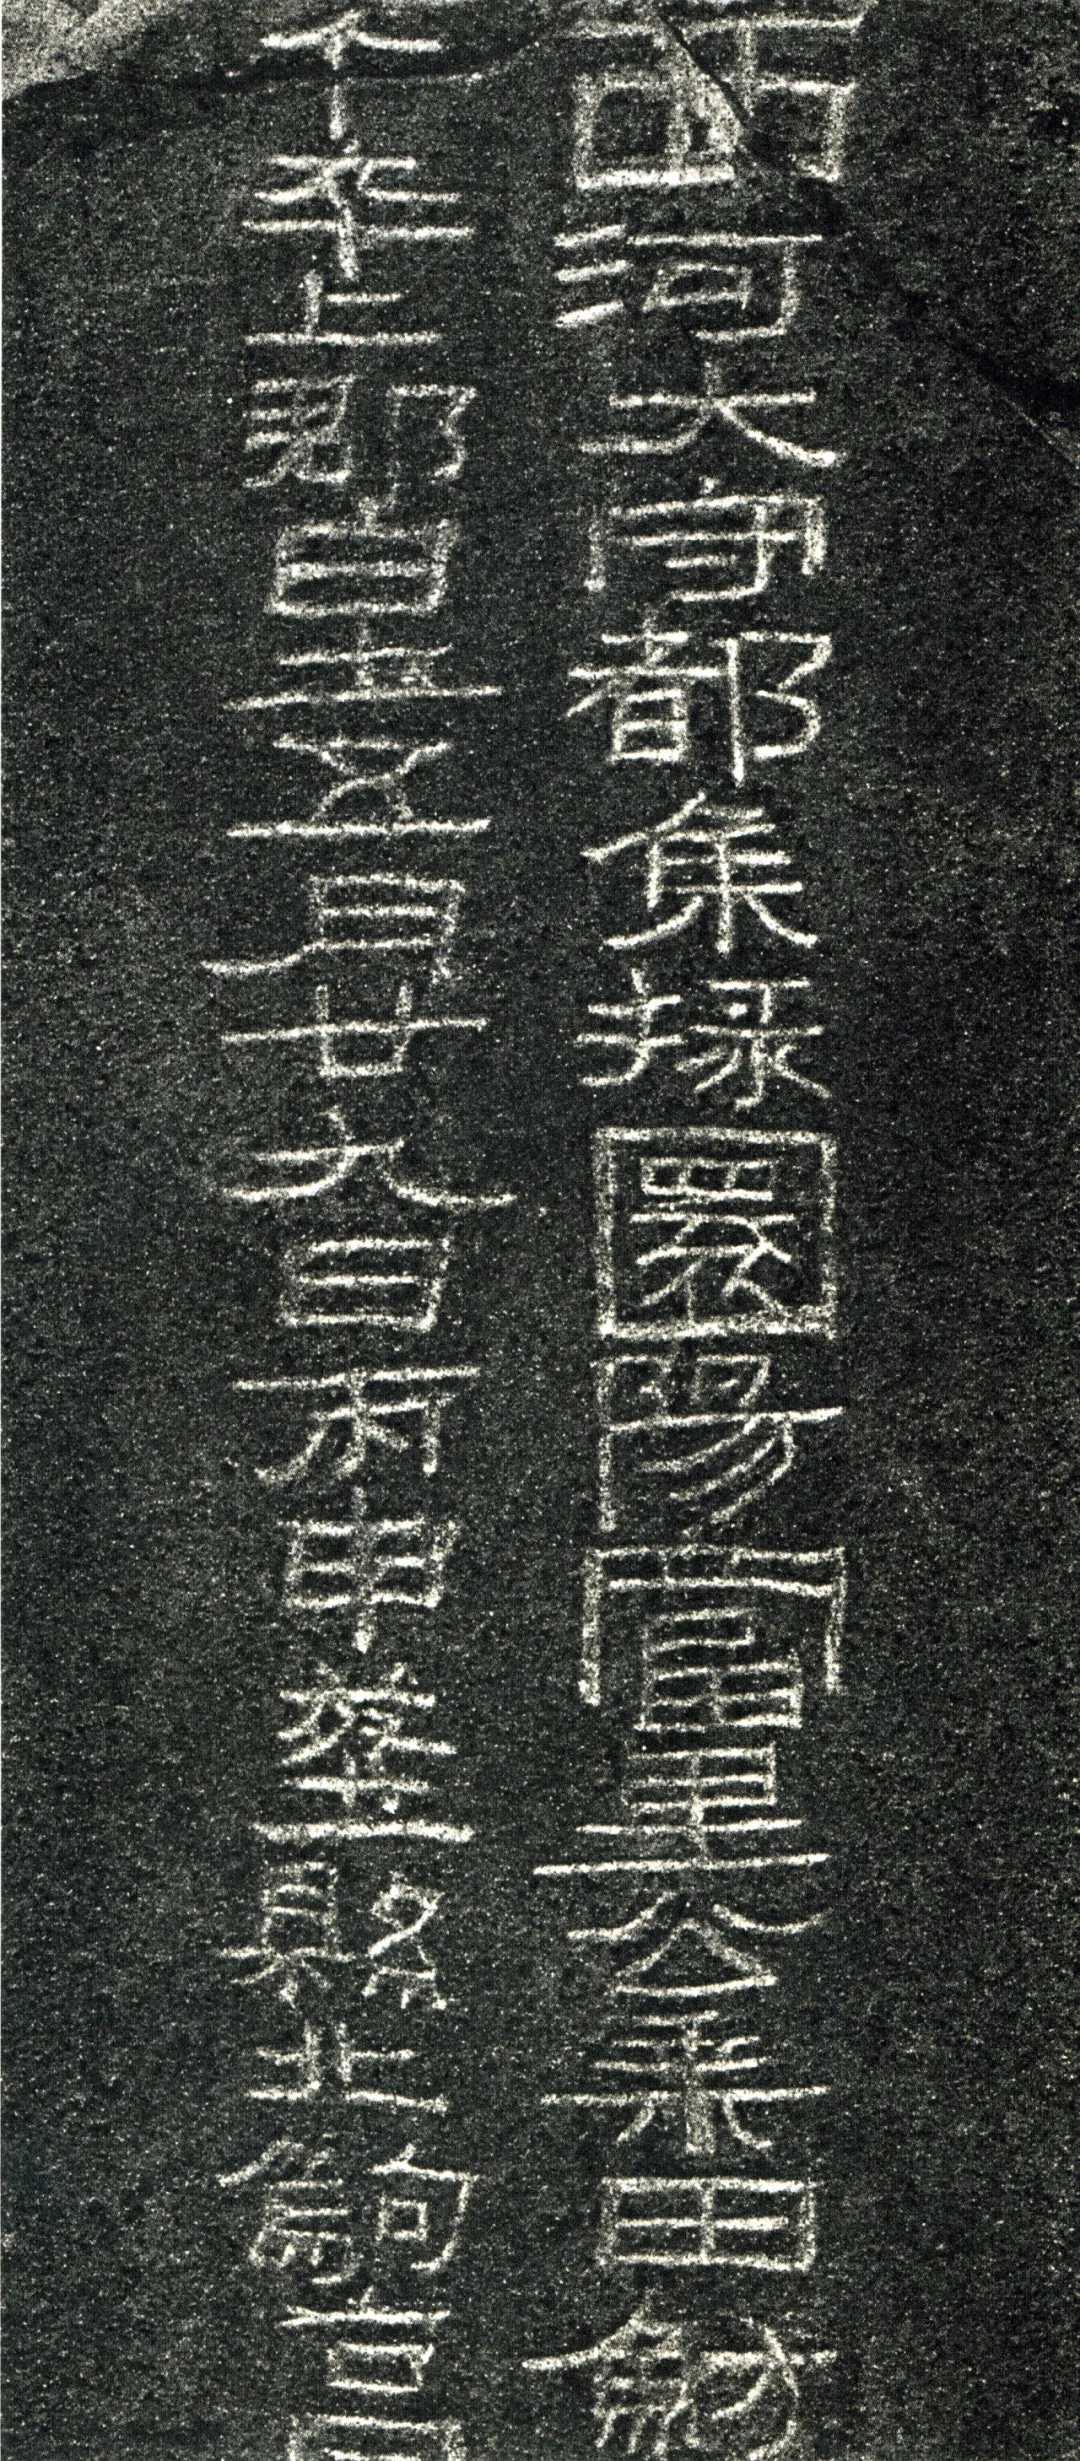 西河大守都集掾圜陽富里公乘田魴
午卒上郡白土五月廿九日丙申葬縣北駒